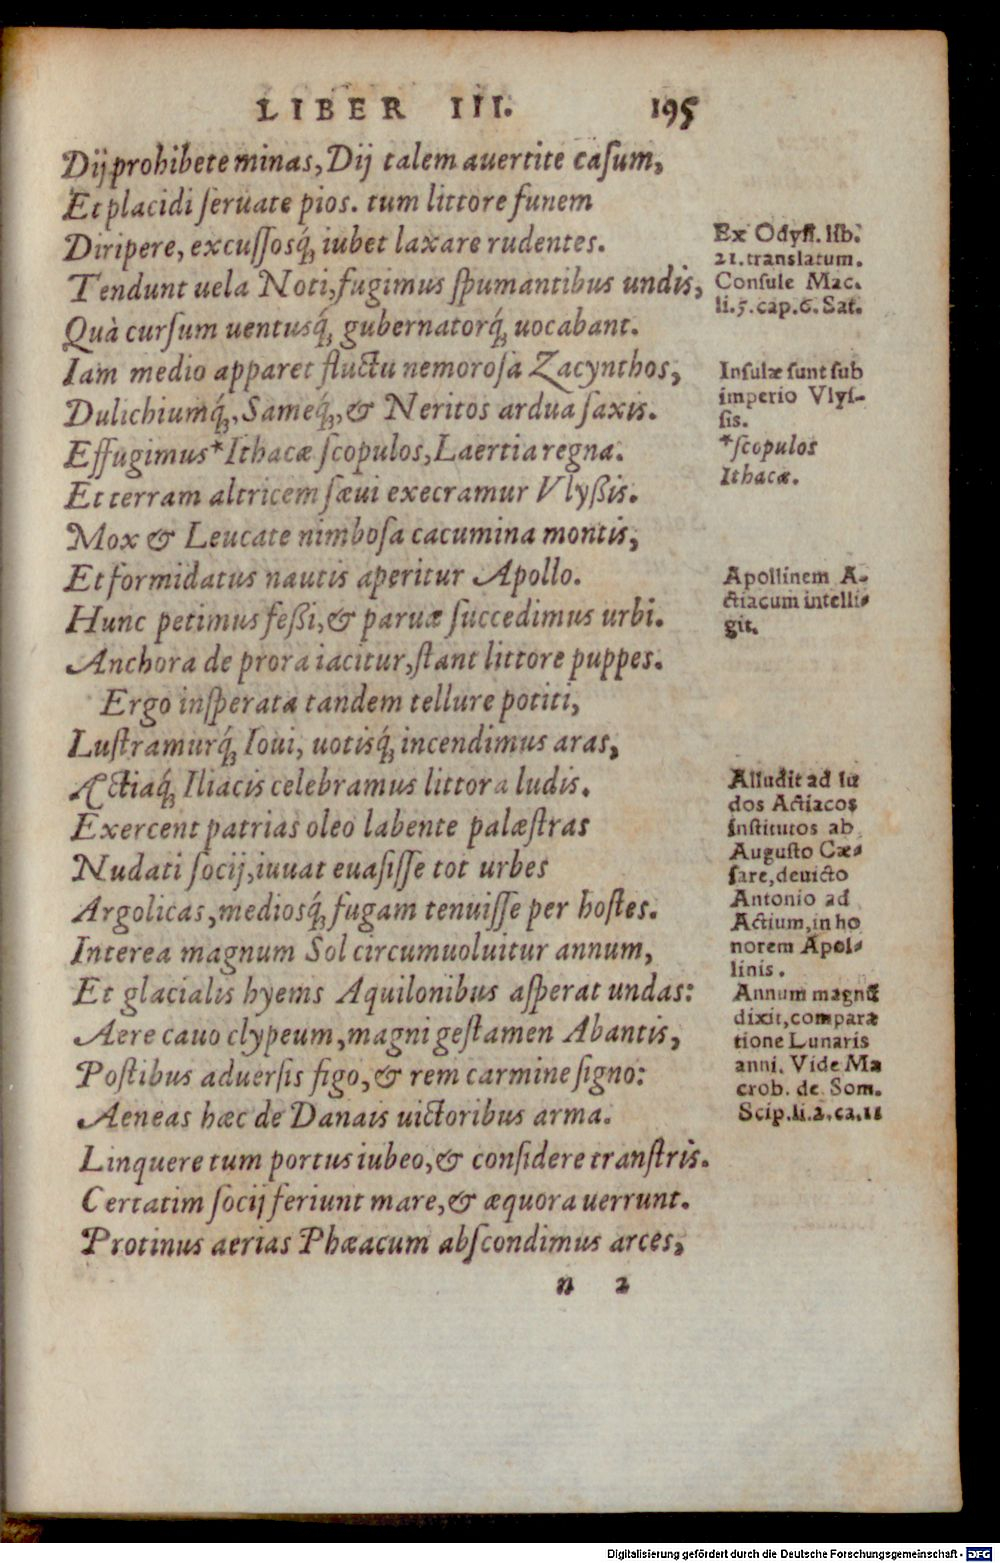 LIBER III. 195
Dij prohibete minas, Dij talem auertite casum,
Et placidi seruate pios. tum littore funem
Diripere, excussosq́; iubet laxare rudentes.
Tendunt uela Noti, fugimus spumantibus undis,
Quà cursum uentusq́; gubernatorq́; uocabant.
Iam medio apparet fluctu nemorosa Zacynthos,
Dulichiumq́;, Sameq́;, & Neritos ardua saxis.
Effugimus * Ithacæ scopulos, Laertia regna.
Et terram altricem sæui execramur Vlyßis.
Mox & Leucate nimbosa cacumina montis,
Et formidatus nautis aperitur Apollo.
Hunc petimus feßi, & paruæ succedimus urbi.
Anchora de prora iacitur, stant littore puppes.
Ergo insperata tandem tellure potiti,
Lustramurq́; Ioui, uotisq́; incendimus aras,
Actiaq́; Iliacis celebramus littora ludis.
Exercent patrias oleo labente palæstras
Nudati socij, iuuat euasisse tot urbes
Argolicas, mediosq́; fugam tenuisse per hostes.
Interea magnum Sol circumuoluitur annum,
Et glacialis hyems Aquilonibus asperat undas:
Aere cauo clypeum, magni gestamen Abantis,
Postibus aduersis figo, & rem carmine signo:
Aeneas hæc de Danais uictoribus arma.
Linquere tum portus iubeo, & considere transtris.
Certatim socij feriunt mare, & æquora uerrunt.
Protinus aerias Phæacum abscondimus arces,
n 2
Ex Odyss. lib.
21. translatum.
Consule Mac.
li. 5. cap. 6. Sat.
Insulæ sunt sub
imperio Vlys-
sis.
* scopulos
Ithacæ.
Apollinem A-
ctiacum intelli-
git.
Alludit ad lu
dos Actiacos
institutos ab
Augusto Cæ-
sare, deuicto
Antonio ad
Actium, in ho
norem Apol-
linis.
Annum magnũ
dixit, compara
tione Lunaris
anni. Vide Ma
crob. de Som.
Scip. li. 2. ca. 11
Digitalisierung gefördert durch die Deutsche Forschungsgemeinschaft - DFG